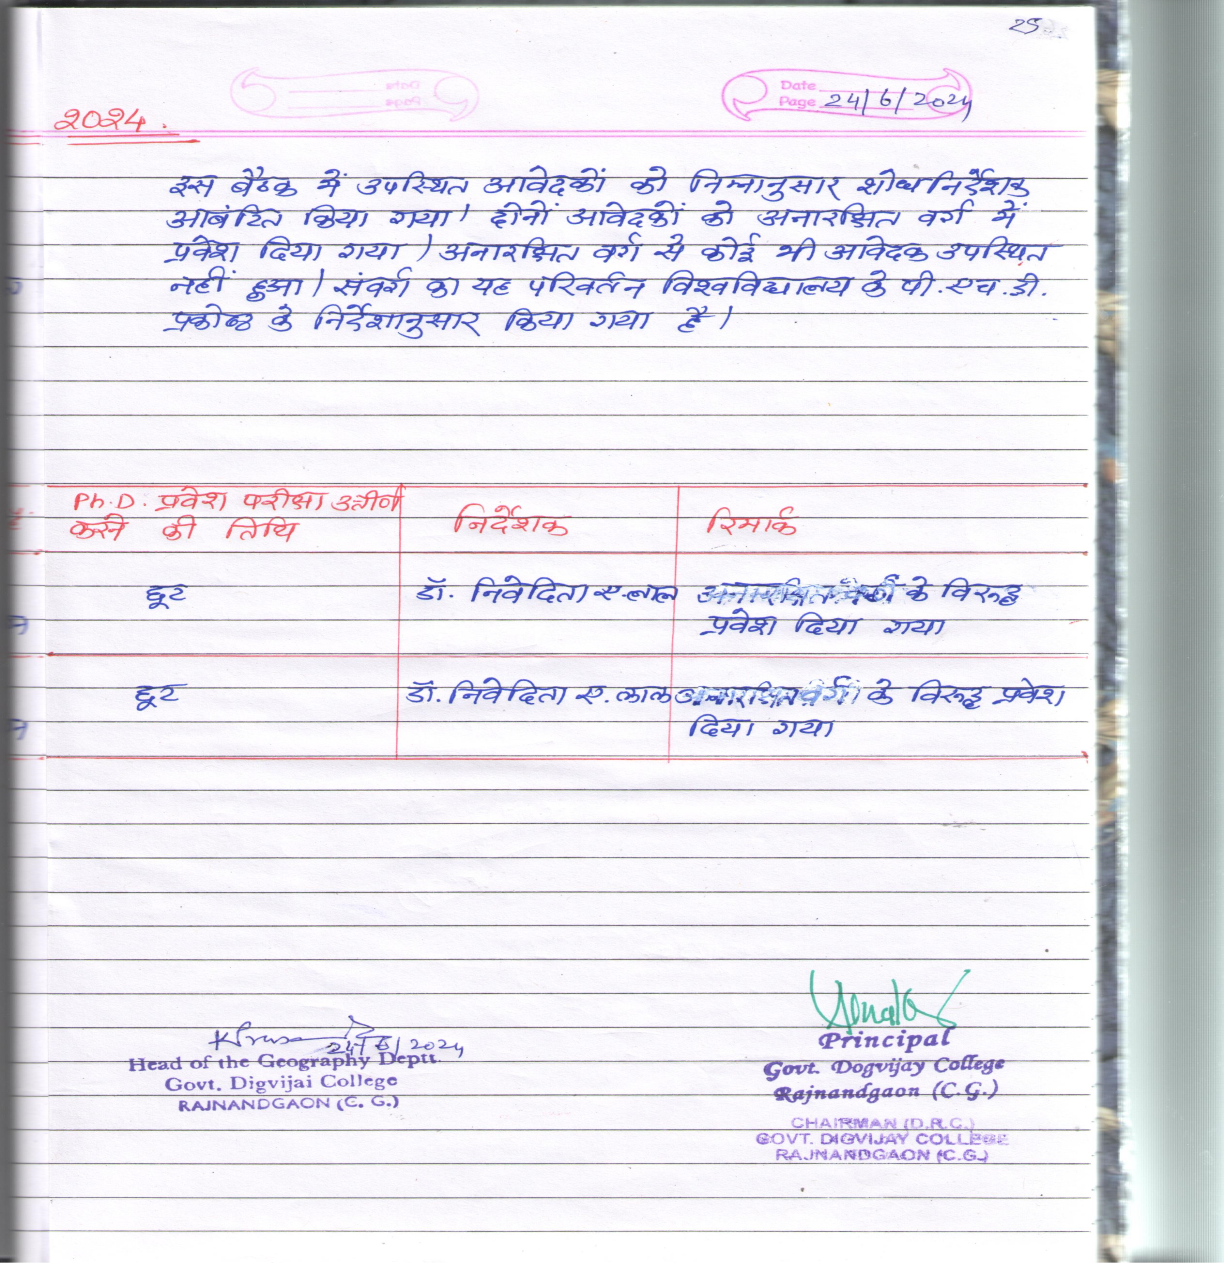 25
Date
Page 24/6/2024
2024.
इस बैठक में उपस्थित आवेदकों को निम्नानुसार शोध निर्देशक
आबंटित किया गया। दोनों आवेदकों को अनारक्षित वर्ग में
प्रवेश दिया गया। अनारक्षित वर्ग से कोई भी आवेदक उपस्थित
नहीं हुआ। संवर्ग का यह परिवर्तन विश्वविद्यालय के पी.एच.डी.
प्रकोष्ठ के निर्देशानुसार किया गया है।
Ph.D. प्रवेश परीक्षा उत्तीर्ण
करने की तिथि
निर्देशक
रिमार्क
छूट
डॉ. निवेदिता ए. लाल
अनारक्षित वर्ग के विरुद्ध
प्रवेश दिया गया
छूट
डॉ. निवेदिता ए. लाल
अनारक्षित वर्ग के विरुद्ध प्रवेश
दिया गया
24/6/2024
Head of the Geography Deptt.
Govt. Digvijai College
RAJNANDGAON (C. G.)
Principal
Govt. Dogvijay College
Rajnandgaon (C.G.)
CHAIRMAN (D.R.C.)
GOVT. DIGVIJAY COLLEGE
RAJNANDGAON (C.G.)